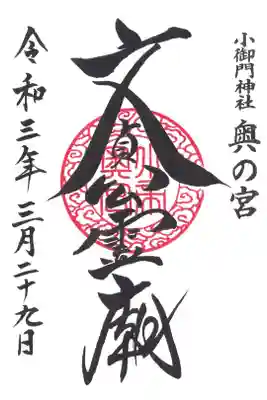 小御門神社 奥の宮
文貞公霊廟
令和三年三月二十九日